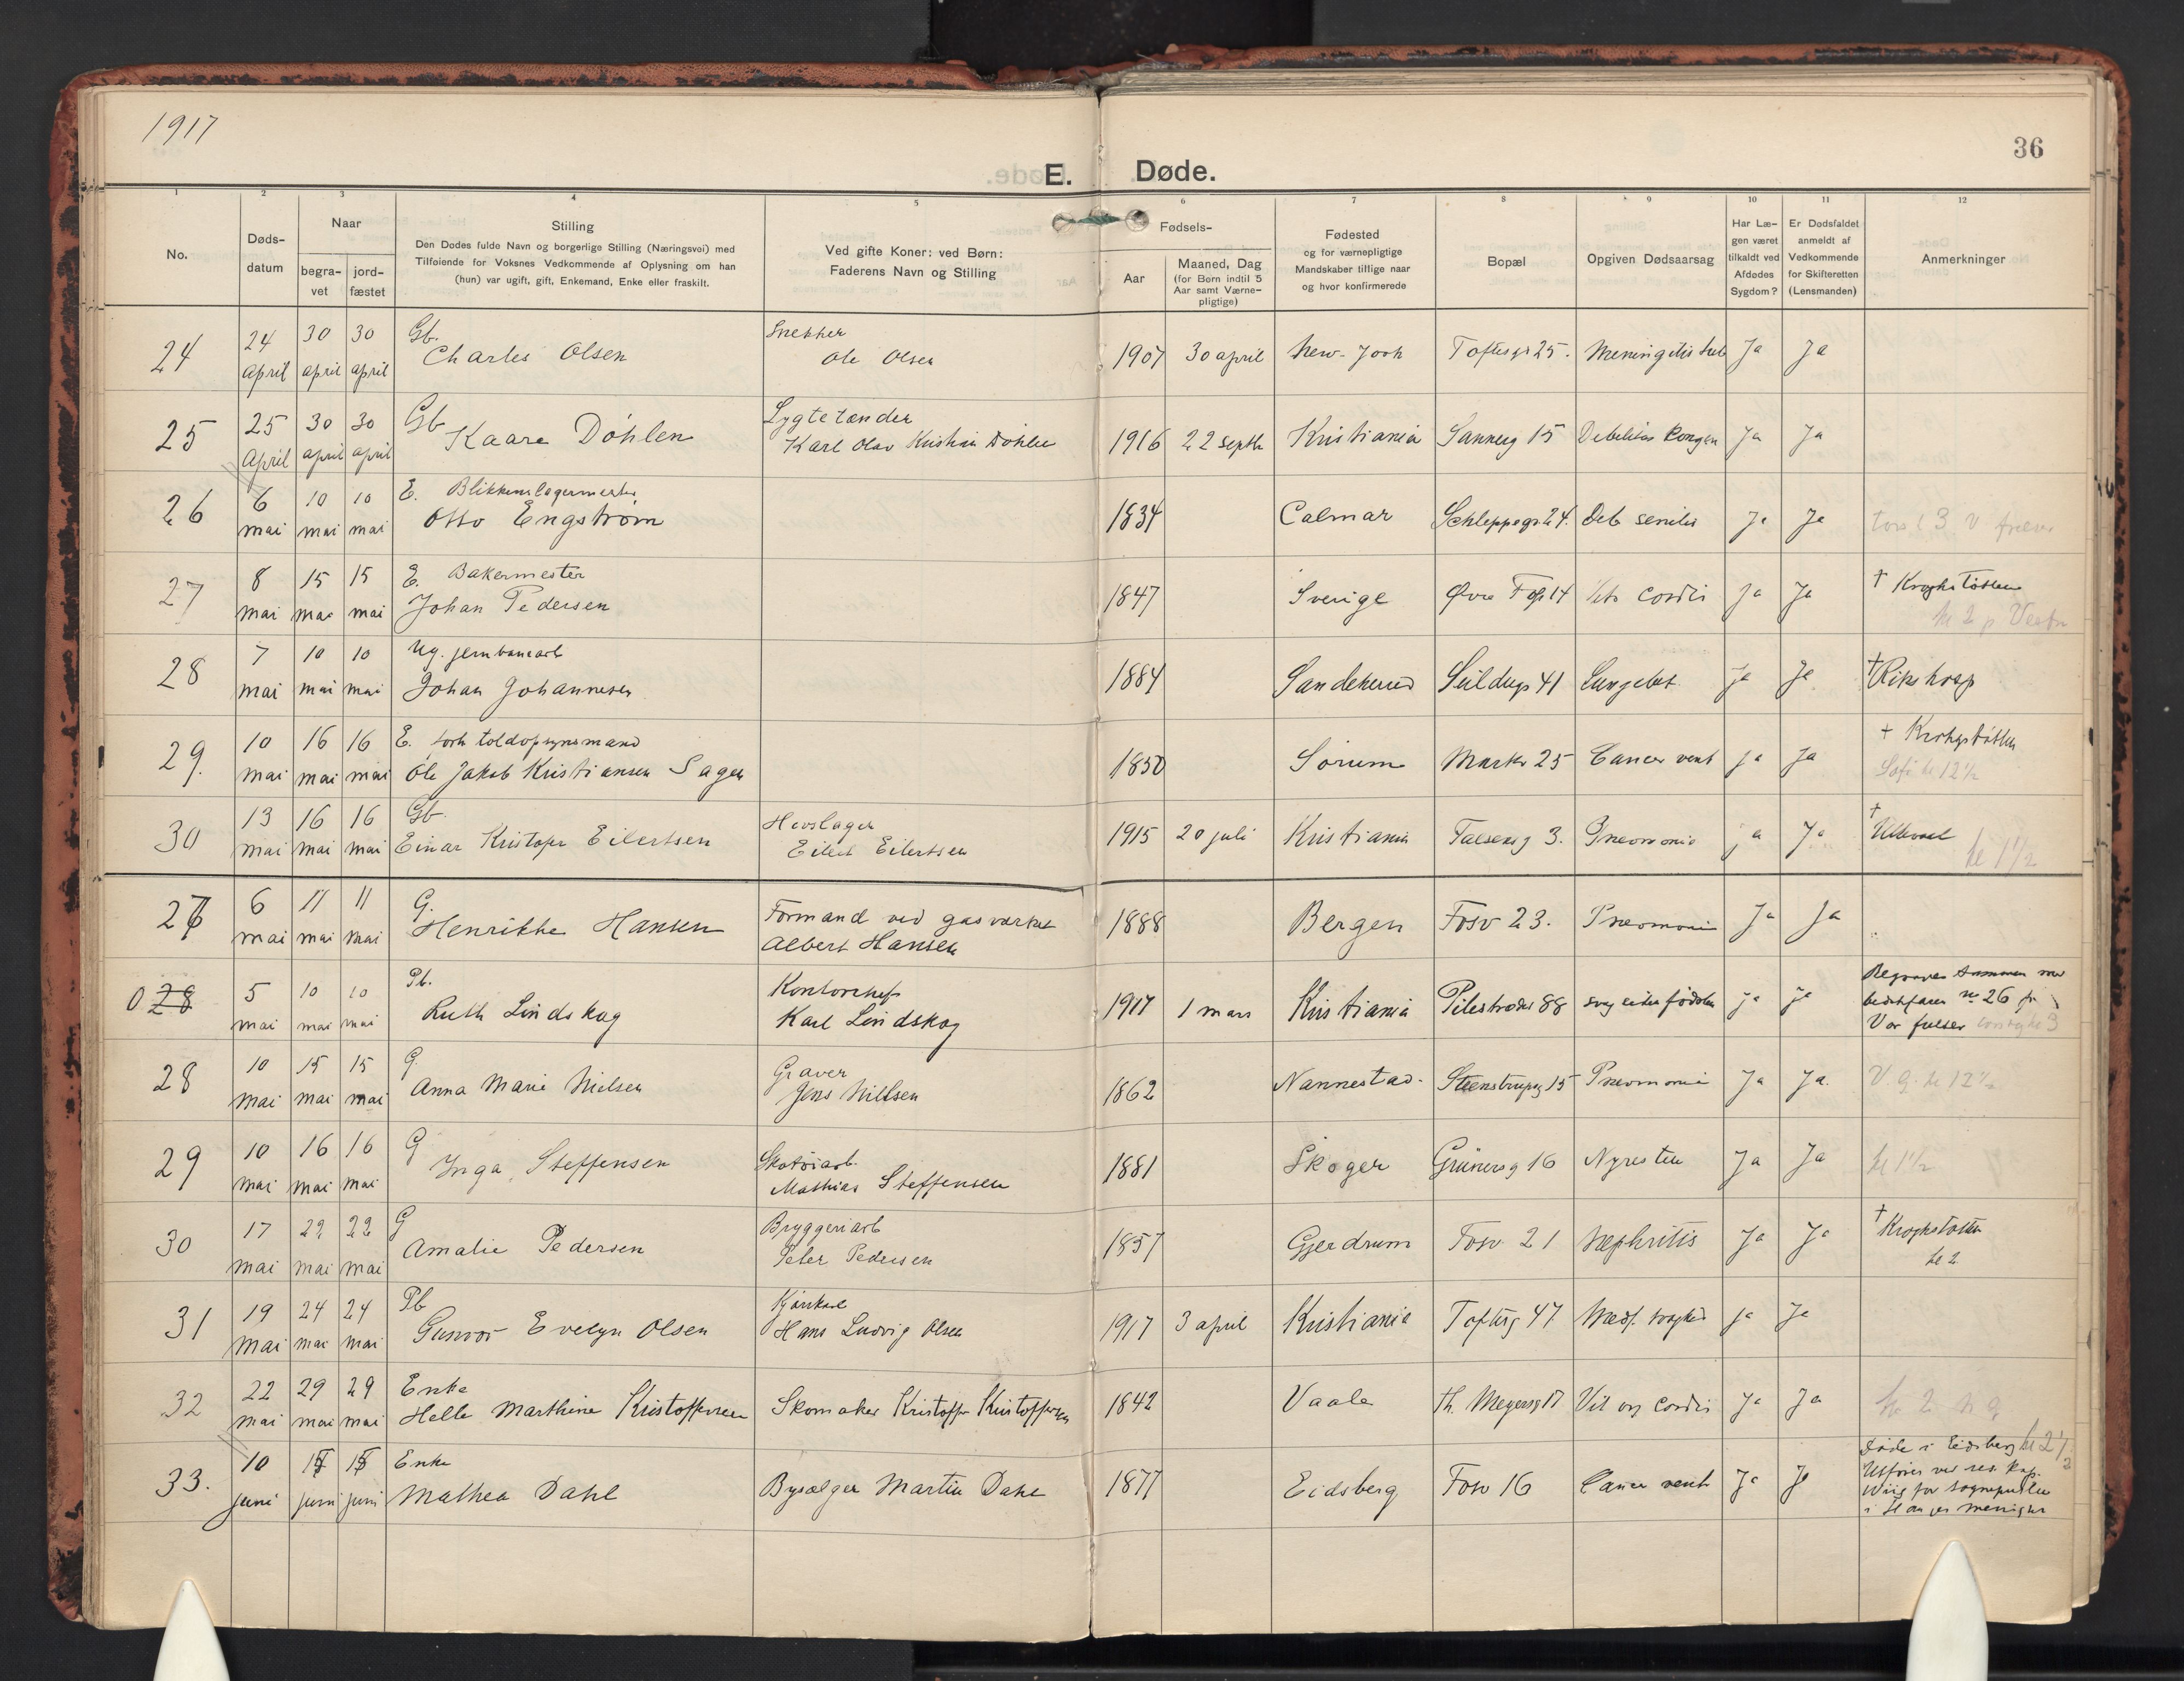 1917
36
E. Døde.
1 2 3 4 5 6 7 8 9 10 11 12
No.
Døds-
datum
Naar
begra-
vet
jord-
fæstet
Stilling
Den Dødes fulde Navn og borgerlige Stilling (Næringsvei) med
Tilføiende for Voksnes Vedkommende af Oplysning om han
(hun) var ugift, gift, Enkemand, Enke eller fraskilt.
Ved gifte Koner: ved Børn:
Faderens Navn og Stilling
Fødsels-
Aar
Maaned, Dag
(for Børn indtil 5
Aar samt Værne-
pligtige)
Fødested
og for værnepligtige
Mandskaber tillige naar
og hvor konfirmerede
Bopæl
Opgiven Dødsaarsag
Har Læ-
gen været
tilkaldt ved
Afdødes
Sygdom?
Er Dødsfaldet
anmeldt af
Vedkommende
for Skifteretten
(Lensmanden)
Anmerkninger
24 30 30 Gb. Snekker
24 april april april Charles Olsen Ole Olsen 1907 30 april New-York Toftesgt 25. Meningitis tub Ja Ja
25 30 30 Gb Lygtetænder
25 April april april Kaare Döhlen Karl Olav Kristian Döhlen 1916 22 septb Kristiania Sannerg 15 Debilitas Ja Ja
6 10 10 E. Blikkenslagermester
26 mai mai mai Otto Engström 1834 Calmar Schleppegr 24. Deb senilis Ja Ja
8 15 15 E. Bakermester
27 mai mai mai Johan Pedersen 1847 Sverige Øvre 14 cordis Ja Ja † Krogstötten
kl 2
7 10 10 Ug. jernbanearb
28 mai mai mai Johan Johannesen 1884 Sandeherred Seildugs 41 Lungebet. Ja Ja † Rikshosp
10 16 16 E. forh toldopsynsmand
29. mai mai mai Ole Jakob Kristiansen Sagen 1850 Sörum Markv 25 Cancer vent Ja Ja † Krohgstötten
kl 12½
13 16 16 Gb. Hovslager
30 mai mai mai Einar Kristofer Eilertsen Eilert Eilertsen 1915 20 juli Kristiania Falseng 3. Pneomonia Ja Ja † Ullevaal
kl 1½
6 11 11 G. Formand ved gasværket
27 mai mai mai Henrikke Hansen Albert Hansen 1888 Bergen Fosv 23. Pneomoni Ja Ja
5 10 10 Pb. Kontorchef
0 28 mai mai mai Ruth Lindskog Karl Lindskog 1917 1 mars Kristiania Pilestrædet 88 svag siden födslen Ja Ja Begraves sammen med
bedstefaren no 26 fr
Vor frelser
10 15 15 G. Graver
28 mai mai mai Anna Marie Nielsen Jens Nielsen 1862 Nannestad. Steenstrupg 15 Pneomoni Ja Ja. V. g. kl 12½
10 16 16 G Skotöiarb.
29 mai mai mai Inga Steffensen Mathias Steffensen 1881 Skoger Grünersg 16 Nyresten Ja Ja kl 1½
17 22 22 G Bryggeriarb
30 mai mai mai Amalie Pedersen Peter Pedersen 1857 Gjerdrum Fosv 21 Nephritis Ja Ja † Krogstötten
kl 2.
19 24 24 Pb Kjörekarl
31 mai mai mai Gunvor Evelyn Olsen Hans Ludvig Olsen 1917 3 april Kristiania Toftesg 47 Medf. svaghed Ja Ja
22 29 29 Enke
32 mai mai mai Helle Marthine Kristoffersen Skomaker Kristoffer Kristoffersen 1842 Vaale Th. Meyersg 17 Vit org cordis Ja Ja kl 2
10 15 15 Enke Döde i Eidsberg kl 2½
33. juni juni juni Mathea Dahl Bysælger Martin Dahl 1877 Eidsberg Fosv 16 Cancer vent Ja Ja Utföres ved res. kap.
Wiig for sogneprest